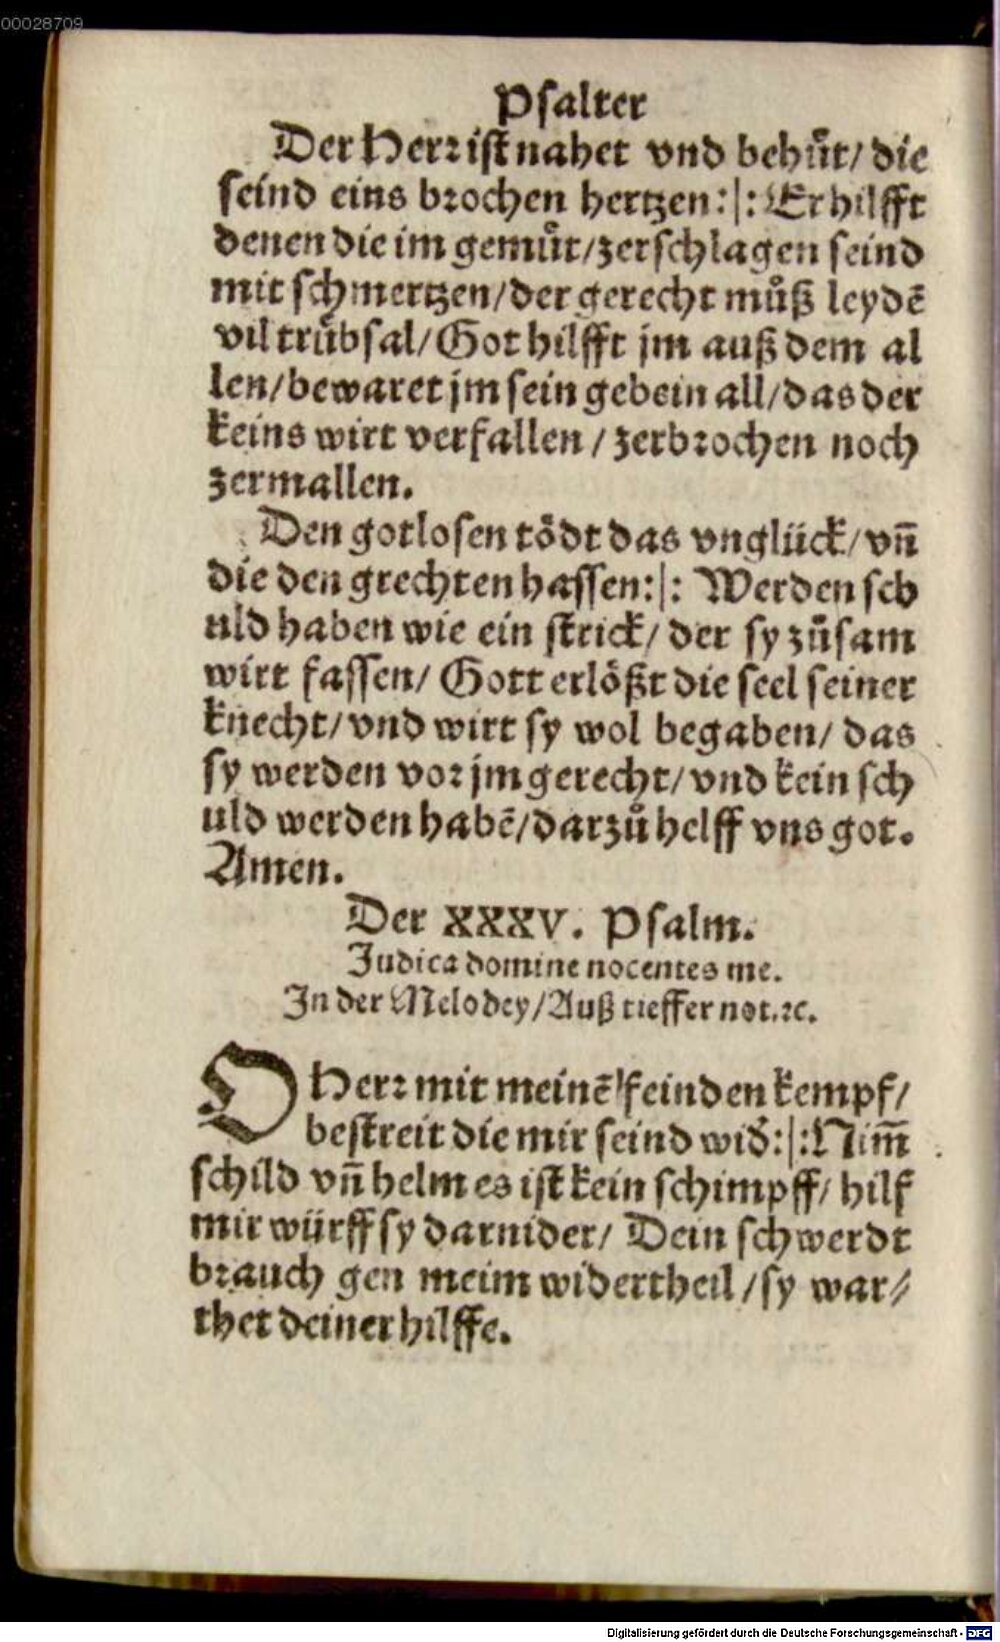 00028709
Psalter
Der Herr ist nahet vnd behuͤt/ die
seind eins brochen hertzen:|: Er hilfft
denen die im gemuͤt/zerschlagen seind
mit schmertzen/der gerecht muͦß leydē
vil truͤbsal/Got hilfft jm auß dem al
len/bewaret jm sein gebein all/das der
keins wirt verfallen/zerbrochen noch
zermallen.
Den gotlosen toͤdt das vnglück/vn̄
die den grechten hassen:|: Werden sch
uld haben wie ein strick/der sy zuͦsam
wirt fassen/ Gott erloͤßt die seel seiner
knecht/vnd wirt sy wol begaben/das
sy werden vor jm gerecht/vnd kein sch
uld werden habē/darzuͦ helff vns got.
Amen.
Der XXXV. Psalm.
Judica domine nocentes me.
In der Melodey/Auß tieffer not.ꝛc.
O Herr mit meinē feinden kempf/
bestreit die mir seind wid̕:|:Nim̄
schild vn̄ helm es ist kein schimpff/ hilf
mir würff sy darnider/ Dein schwerdt
brauch gen meim widertheil/sy war⸗
thet deiner hilffe.
Digitalisierung gefördert durch die Deutsche Forschungsgemeinschaft - DFG